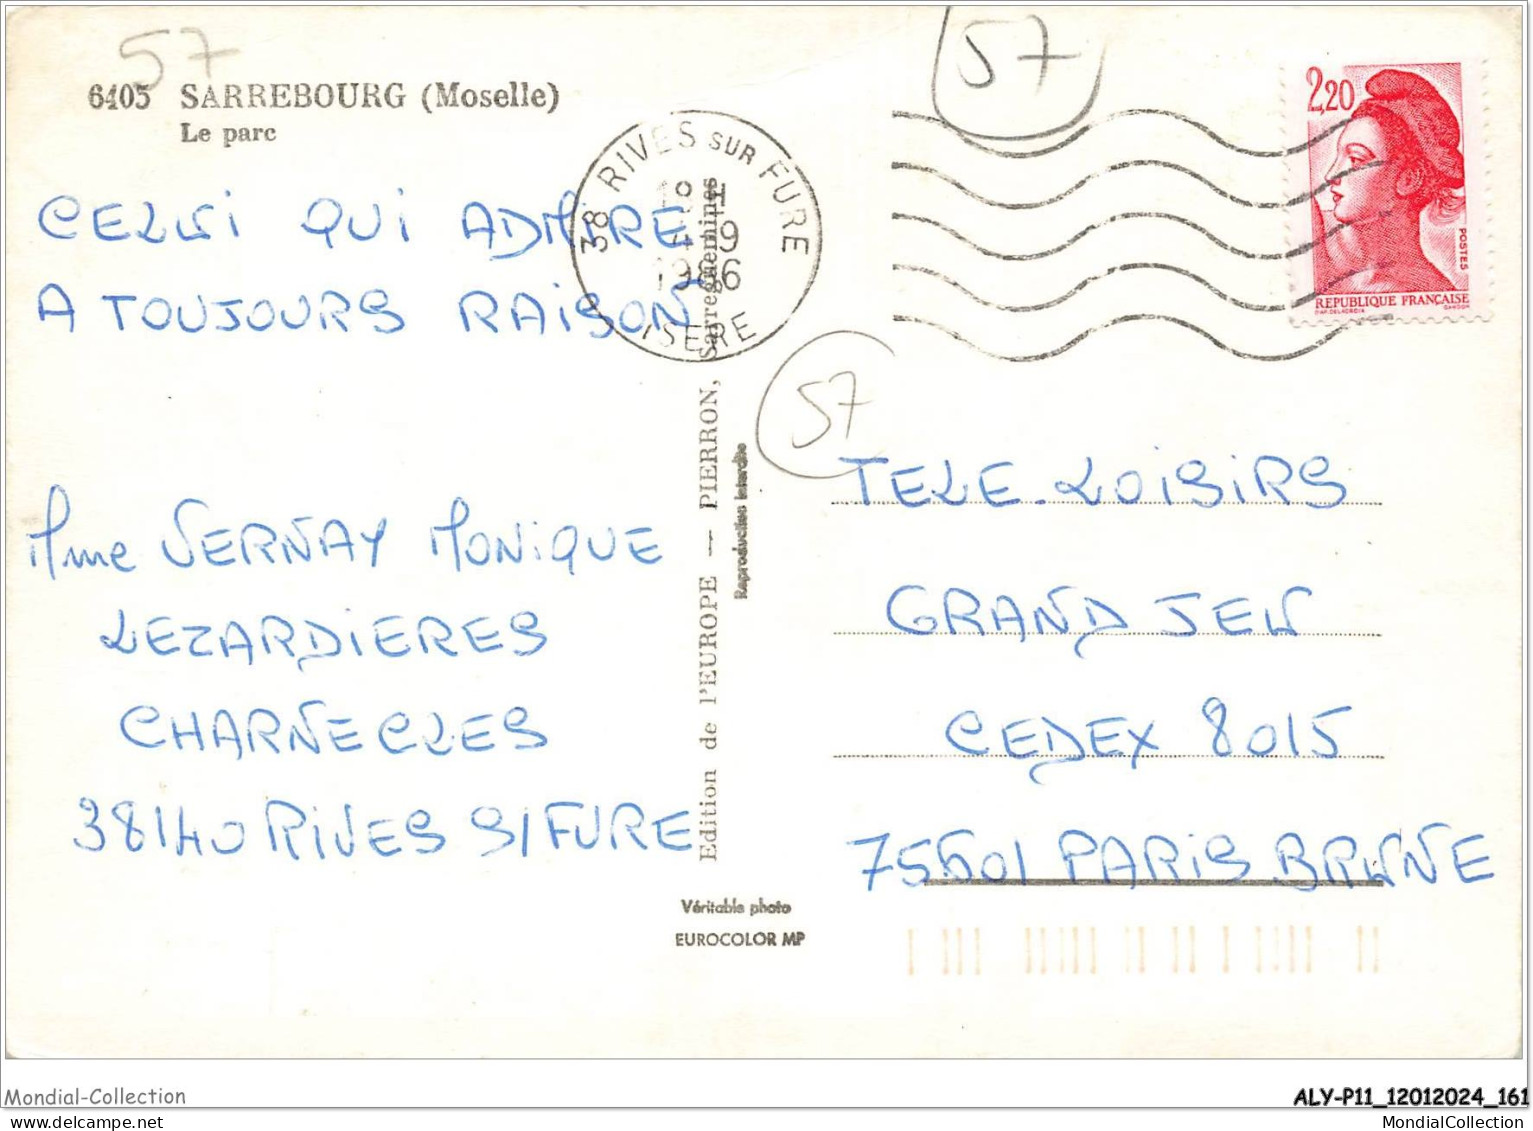 57
6405 SARREBOURG (Moselle)
Le parc
CELUI QUI ADMIRE
A TOUJOURS RAISON
Mme VERNAY MONIQUE
LEZARDIERES
CHARNECLES
38140 RIVES S/FURE
38 RIVES SUR FURE
4-9
1986
ISERE
Edition de l'EUROPE — PIERRON, Sarreguemines
Reproduction interdite
Véritable photo
EUROCOLOR MP
57
2,20
POSTES
REPUBLIQUE FRANÇAISE
D'AP. DELACROIX GANDON
57
TELE-LOISIRS
GRAND JEU
CEDEX 8015
75601 PARIS BRUNE
Mondial-Collection
ALY-P11_12012024_161
MondialCollection